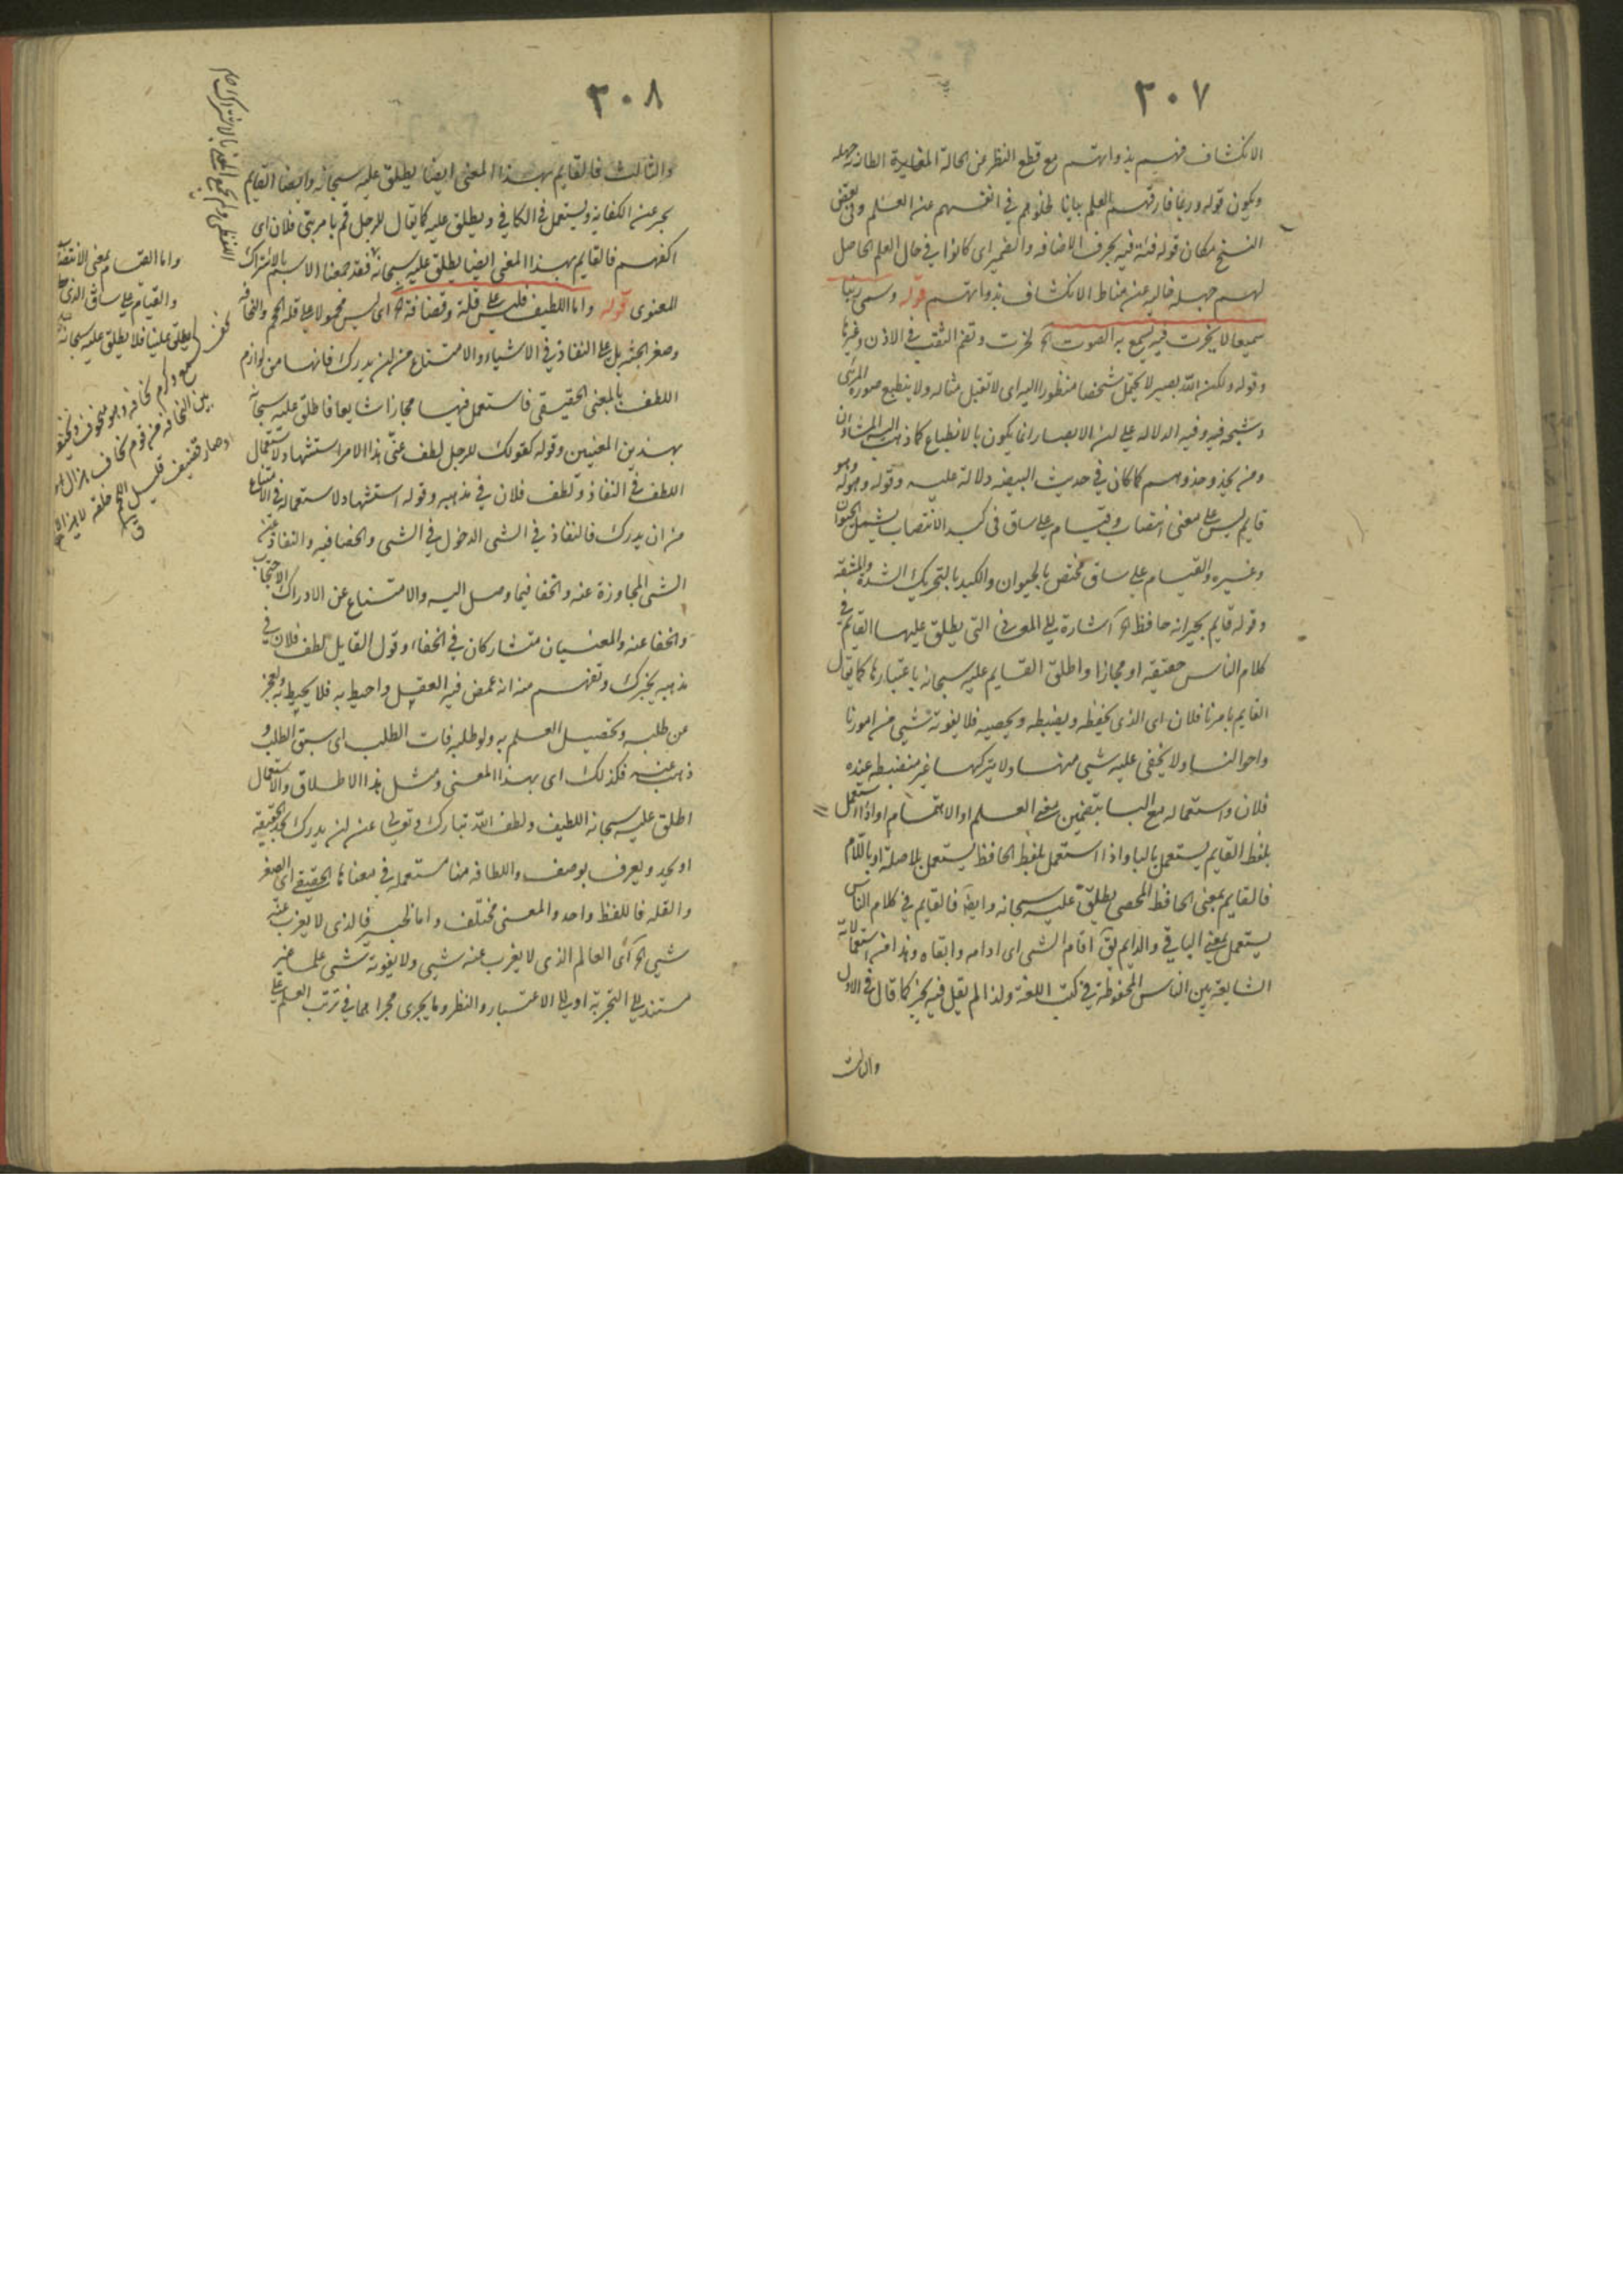 ٣٠٧
الانكشاف فهيم بذواتهم مع قطع النظر عن الحالة المغايرة الطارئه جهله
ويكون قوله وربما فارقهم العلم بيانا لخلوهم في انفسهم عن العلم وفي بعض
النسخ مكان قوله فئة فيه بحرف الاضافه والضمير اى كانوا في حال العلم الحاصل
لهم جهله خاليه عن مناط الانكشاف بذواتهم قوله وسمى ربنا
سميعا لا بخرت فيه يسمع به الصوت الخ لخرت وتضم الثقب في الاذن وغيرها
وقوله ولكن الله بصير لا يحتمل شخصا منظورا اليه اى لا تقبل مثاله ولا ينطبع صورة المرئى
وشبحه فيه وفيه الدلاله على ان الابصار انما يكون بالانطباع كما ذهب اليه المشاؤن
ومن يحذو حذوهم كما كان في حديث البيضه دلالة عليه وقوله وهو
قايم ليس على معنى انتصاب وقيام على ساق في كبد الانتصاب يشمل الحيوان
وغيره والقيام على ساق مختص بالحيوان والكبد بالتحريك الشدة والمشقه
وقوله قايم يخبر انه حافظ الخ اشارة الى المعاني التى يطلق عليها القايم في
كلام الناس حقيقه او مجازا واطلق القايم عليه سبحانه باعتبارها كما يقال
القايم بامرنا فلان اى الذى يحفظه ويضبطه ويحصيه فلا يفوته شيى من امورنا
واحوالنا ولا يخفى عليه شيى منها ولا يتركها غير منضبطه عنده
فلان واستعماله مع البا بتضمين معنى العلم او الاهتمام او اذا استعمل
بلفظ القايم يستعمل بالبا واذا استعمل بلفظ الحافظ يستعمل بلا صلة او باللام
فالقايم بمعنى الحافظ المحصى يطلق عليه سبحانه وايضا فالقايم في كلام الناس
يستعمل بمعنى الباقي والدايم يق اقام الشى اى ادامه وابقاه وهذا من استعمالاته
الشايعة بين الناس المحفوظة في كتب اللغة ولذا لم يقل فيه يخبر كما قال في الاول
والثالث
٣٠٨
والثالث فالقايم بهذا المعنى ايضا يطلق عليه سبحانه وايضا القايم
يخبر عن الكفاية ويستعمل في الكافي ويطلق عليه كما يقال للرجل قم بامر بنى فلان اى
اكفهم فالقايم بهذا المعنى ايضا يطلق عليه سبحانه فقد جمعنا الاسم بالاشتراك
المعنوى قوله واما اللطيف فليس على قلة وقضافة الخ اى ليس محمولا على قلة الحجم والنحافه
وصغر الجثه بل على النفاذ في الاشياء والامتناع من ان يدرك فانها من لوازم
اللطف بالمعنى الحقيقي فاستعمل فيها مجازا شايعا فاطلق عليه سبحانه
بهذين المعنيين وقوله كقولك للرجل لطف عنى هذا الامر استشهاد لاستعمال
اللطف في النفاذ ولطف فلان في مذهبه وقوله استشهاد لاستعماله في الامتناع
من ان يدرك فالنفاذ في الشى الدخول في الشى والخفا فيه والنفاذ عنه
الشى المجاوزة عنه والخفا فيما وصل اليه والامتناع عن الادراك الاحتجاب
والخفا عنه والمعنيان متشاركان في الخفاء وقول القايل لطف فلان في
مذهبه يخبرك وتفهم منه انه غمض فيه العقل واحيط به فلا يحيط به ولعجز
من طلبه وتحصيل العلم به ولو طلبه فات الطلب اى سبق الطلب و
ذهب عنه فكذلك اى بهذا المعنى ومثل هذا الاطلاق والاستعمال
اطلق عليه سبحانه اللطيف ولطف الله تبارك وتعالى عن ان يدرك كحد الحقيقه
او يحد ويعرف بوصف واللطافه منا مستعمله في معناها الحقيقى اى الصغر
والقله فاللفظ واحد والمعنى مختلف واما الخبير فالذى لا يعزب عنه
شيى الخ اى العالم الذى لا يعزب عنه شيى ولا يفوته شى علما غير
مستند الى التجربة او الى الاعتبار والنظر وما يجرى مجراهما في ترتب العلم على
واما القيام بمعنى الانتصاب
والقيام على ساق الذى
يطلق علينا فلا يطلق عليه سبحانه
كسمع وكرم نحافه وهو منحوف ونحيف
بين النحافه من قوم نحاف هزال